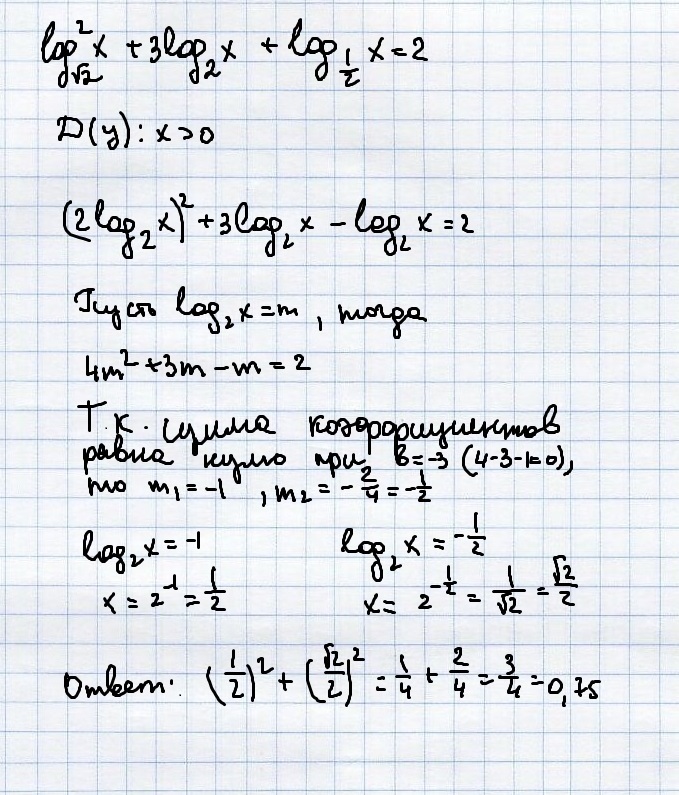 log²_√2 x + 3log_2 x + log_1/2 x = 2
D(y): x > 0
(2log_2 x)² + 3log_2 x - log_2 x = 2
Пусть log_2 x = m, тогда
4m² + 3m - m = 2
Т.к. сумма коэффициентов
равна нулю при b = -3 (4-3-1=0),
то m₁ = -1, m₂ = -2/4 = -1/2
log_2 x = -1 log_2 x = -1/2
x = 2⁻¹ = 1/2 x = 2^(-1/2) = 1/√2 = √2/2
Ответ: (1/2)² + (√2/2)² = 1/4 + 2/4 = 3/4 = 0,75